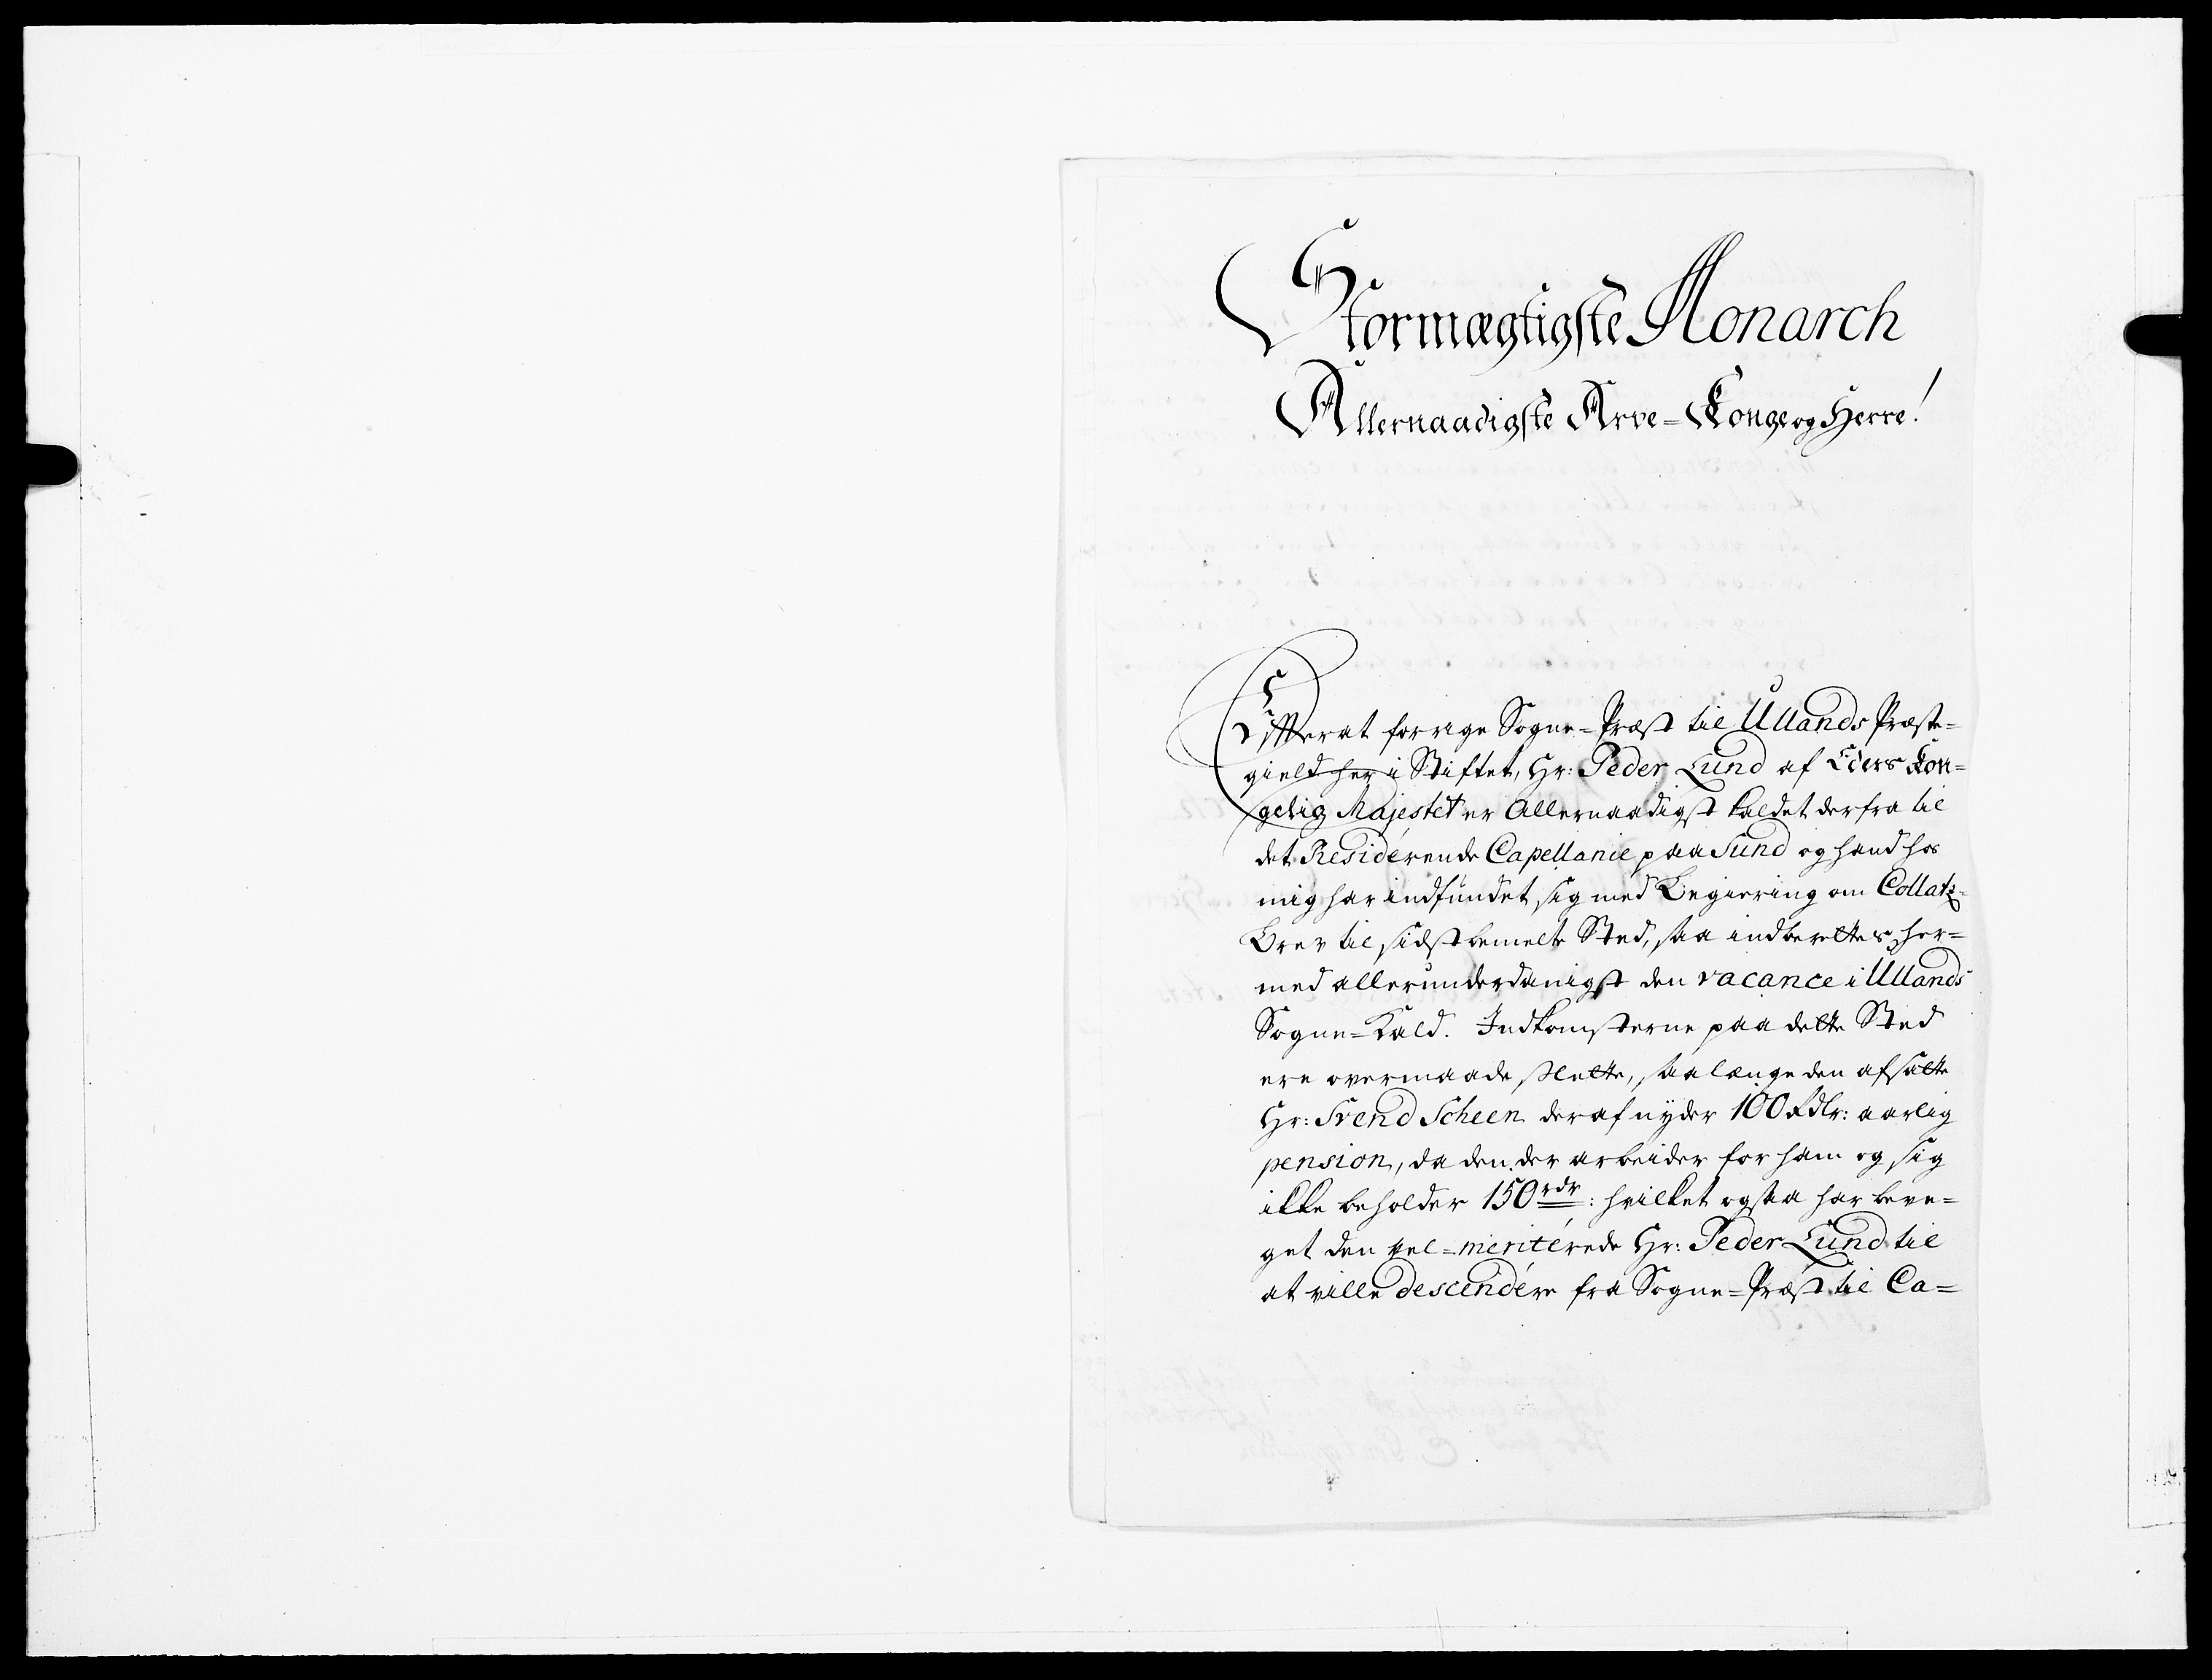 Stormægtigste Monarch
Allernaadigste Arve=Konge og Herre!
Efterat forrige Sogne=Præst til Ullands Præste=
gield her i Stiftet, Hr: Peder Lund af Eders Kon=
gelig Majestet er Allernaadigst kaldet derfra til
det Residérende Capellanie paa Sund og hand hos
mig har indfundet sig med Begiering om Collatz=
Brev til sidstbemelte Sted, saa indberettes her=
med allerunderdanigst den vacance i Ullands
Sogne=Kald. Indkomsterne paa dette Sted
ere overmaade slette, saalænge den afsatte
Hr: Svend Scheen deraf nyder 100 Rdlr: aarlig
pension, da den der arbeider for ham og sig
ikke beholder 150 rdr: hvilket ogsaa har beve=
get den vel=meritérede Hr: Peder Lund til
at ville descendére fra Sogne=Præst til Ca=